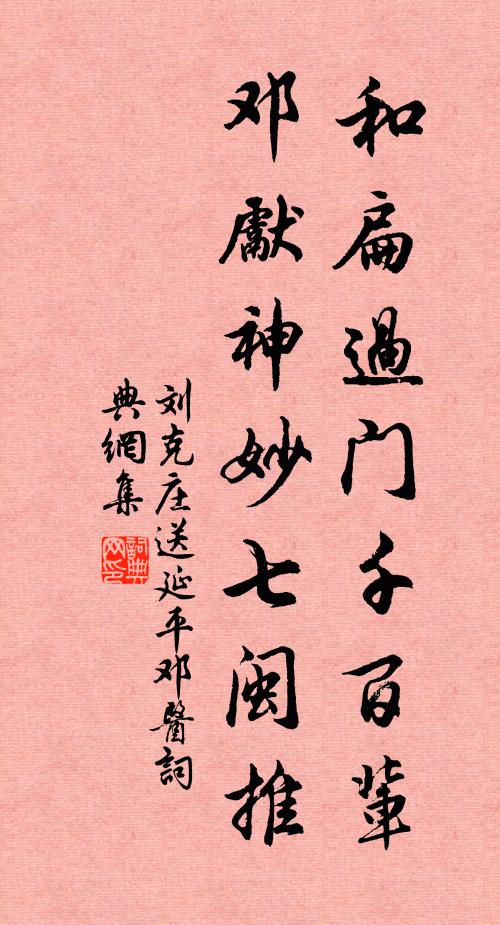 和扁過门千百軰
邓獻神妙七闽推
刘克庄送延平邓醫詞
典網集
詞典
网印